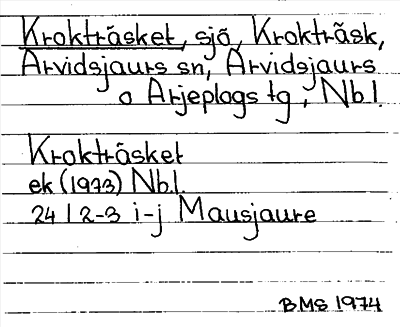 Krokträsket, sjö, Krokträsk,
Arvidsjaurs sn, Arvidsjaurs
o Arjeplogs tg, Nbl.
Krokträsket
ek (1973) Nbl.
24 I 2-3 i-j Mausjaure
BMS 1974